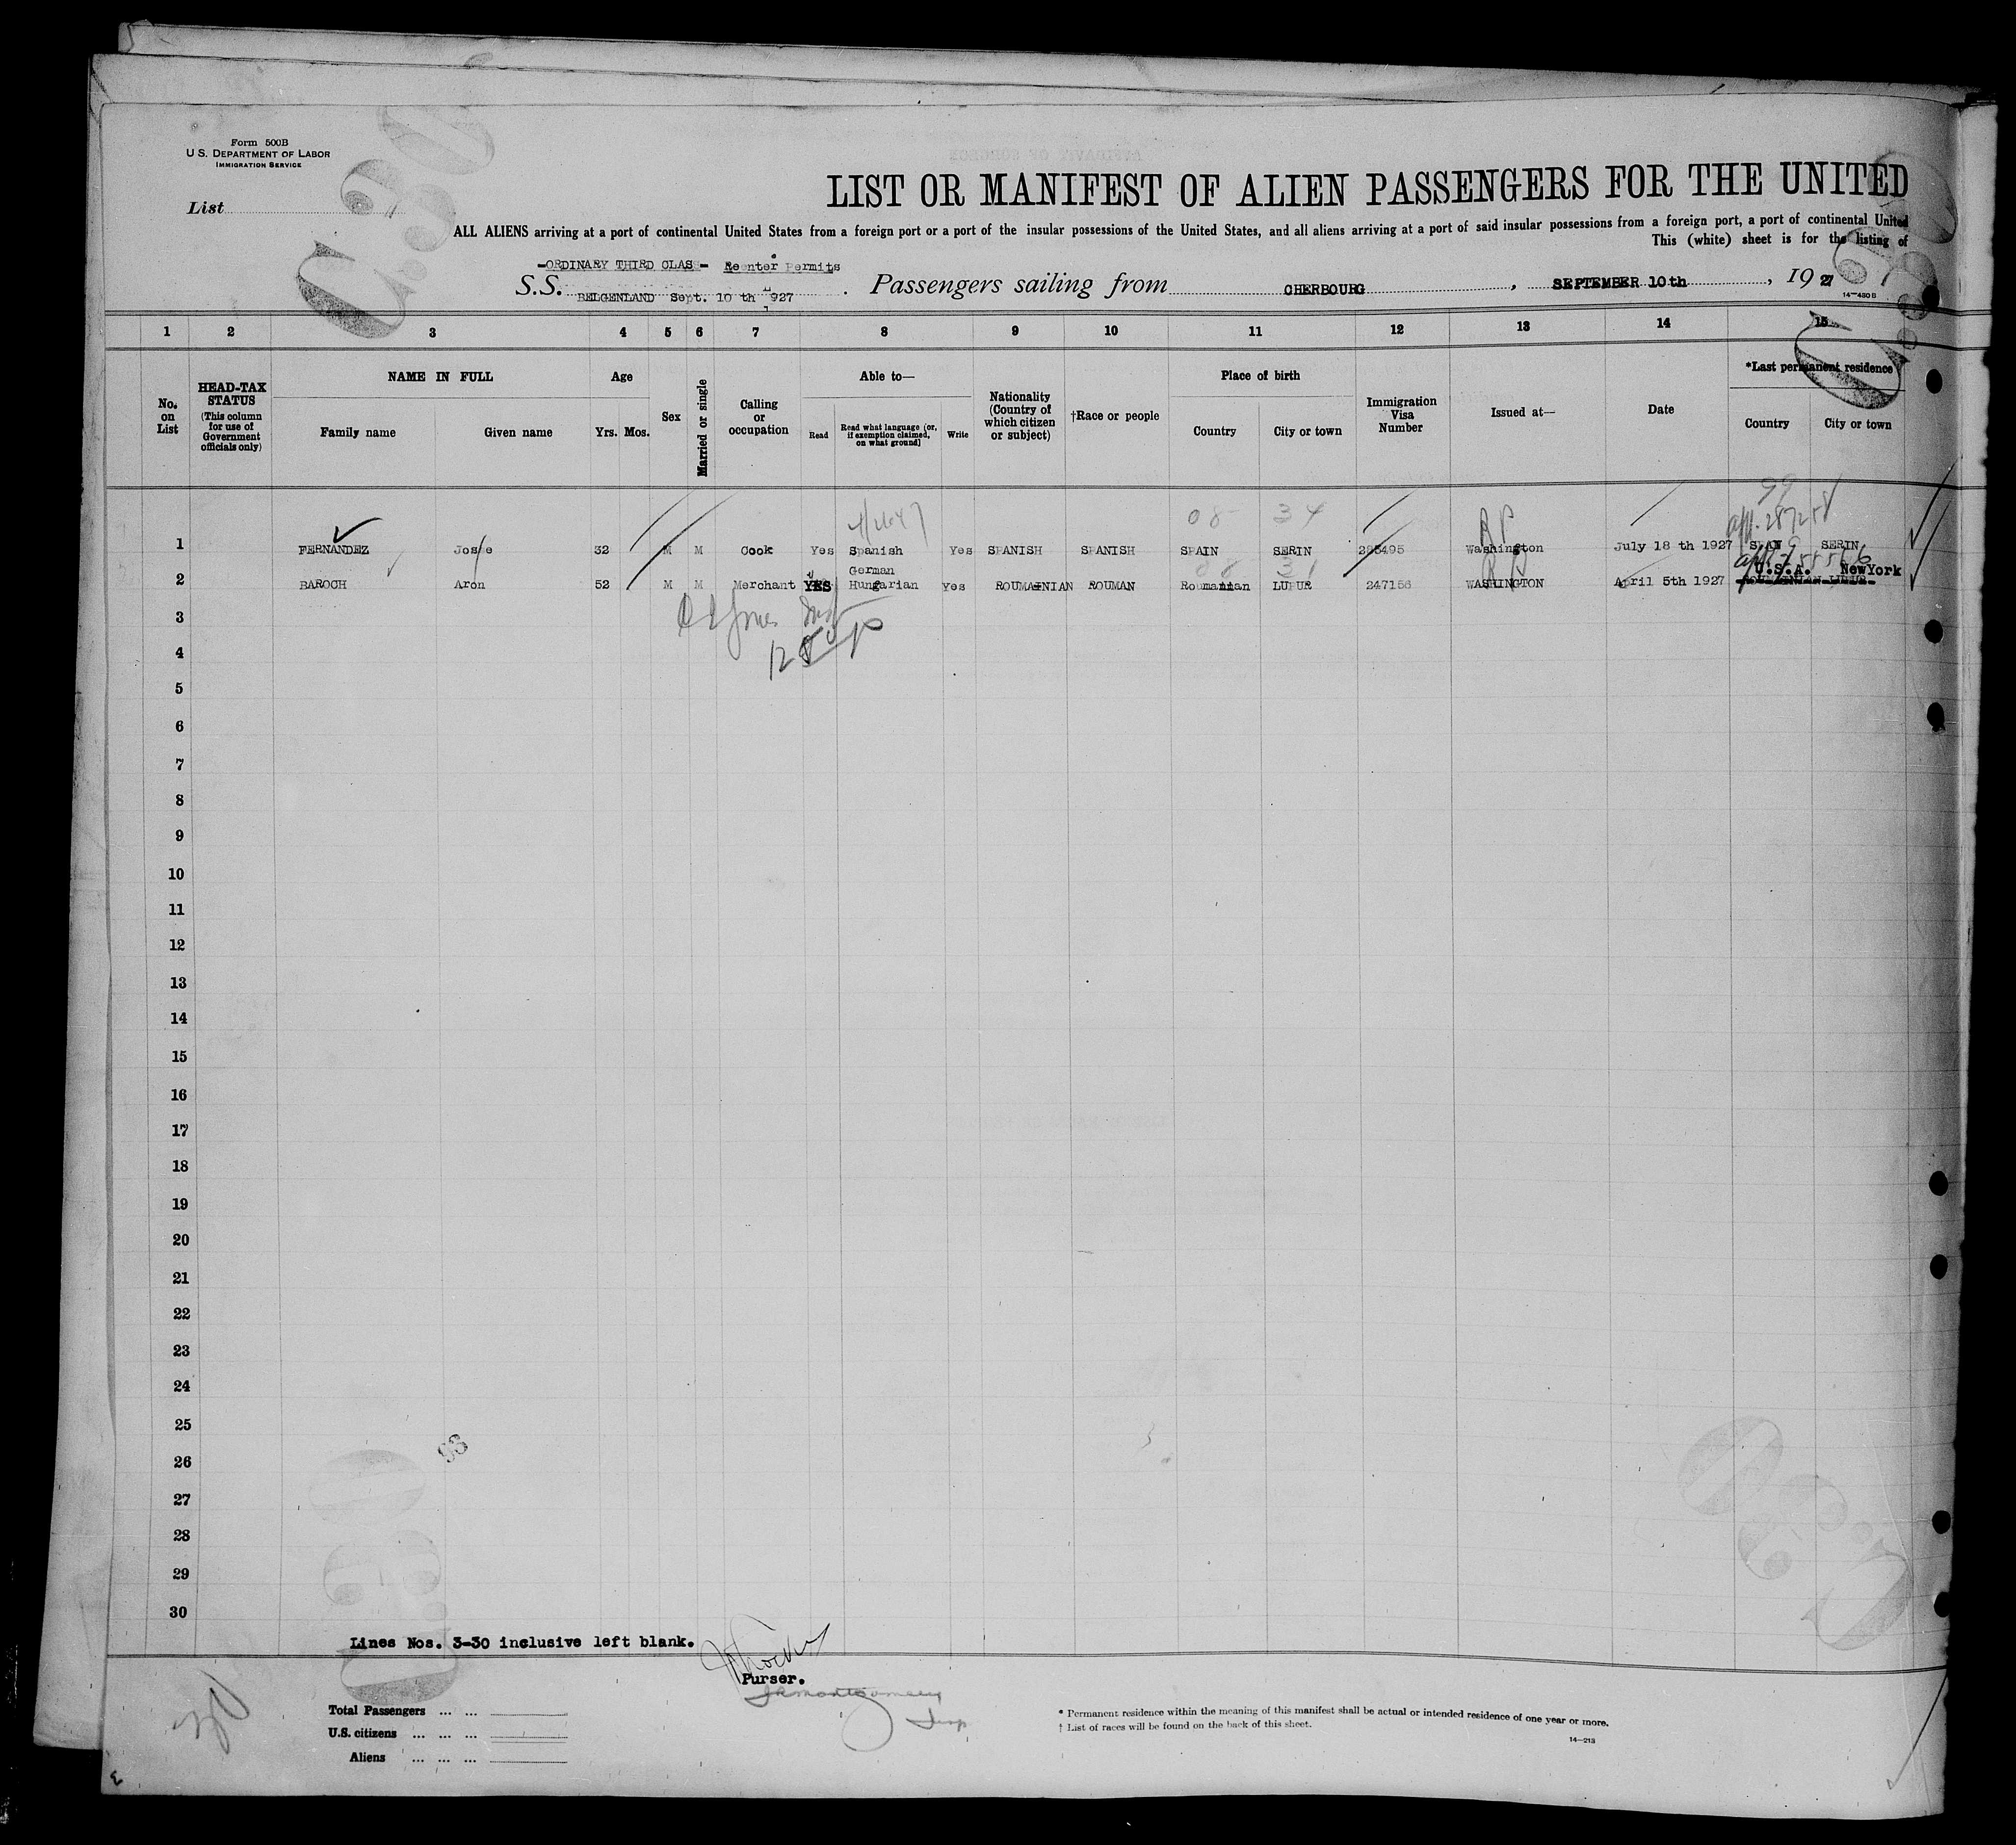 Form 500B
U S. DEPARTMENT OF LABOR
IMMIGRATION SERVICE
List
LIST OR MANIFEST OF ALIEN PASSENGERS FOR THE UNITED
ALL ALIENS arriving at a port of continental United States from a foreign port or a port of the insular possessions of the United States, and all aliens arriving at a port of said insular possessions from a foreign port, a port of continental United
This (white) sheet is for the listing of
-ORDINARY THIRD CLASS- Reenter Permits
S.S. BELGENLAND Sept. 10 th 1927. Passengers sailing from CHERBOURG, SEPTEMBER 10th, 1927
14-430 B
1 2 3 4 5 6 7 8 9 10 11 12 13 14 15
No. on List
HEAD-TAX STATUS
(This column for use of Government officials only)
NAME IN FULL
Family name Given name
Age
Yrs. Mos.
Sex
Married or single
Calling or occupation
Able to—
Read
Read what language (or, if exemption claimed, on what ground)
Write
Nationality (Country of which citizen or subject)
†Race or people
Place of birth
Country City or town
Immigration Visa Number
Issued at—
Date
*Last permanent residence
Country City or town
08 34 RP 99
1 FERNANDEZ Josse 32 M M Cook Yes Spanish Yes SPANISH SPANISH SPAIN SERIN 285495 Washington July 18 th 1927 SPAIN SERIN
German
U.S.A. NewYork
2 BAROCH Aron 52 M M Merchant YES Hungarian Yes ROUMAINIAN ROUMAN Roumanian LUPUR 247156 WASHINGTON April 5th 1927
3
4
5
6
7
8
9
10
11
12
13
14
15
16
17
18
19
20
21
22
23
24
25
26
27
28
29
30
93
Lines Nos. 3-30 inclusive left blank.
Purser.
Total Passengers ... ...
U.S. citizens ... ... ...
Aliens ... ... ...
* Permanent residence within the meaning of this manifest shall be actual or intended residence of one year or more.
† List of races will be found on the back of this sheet.
14-213